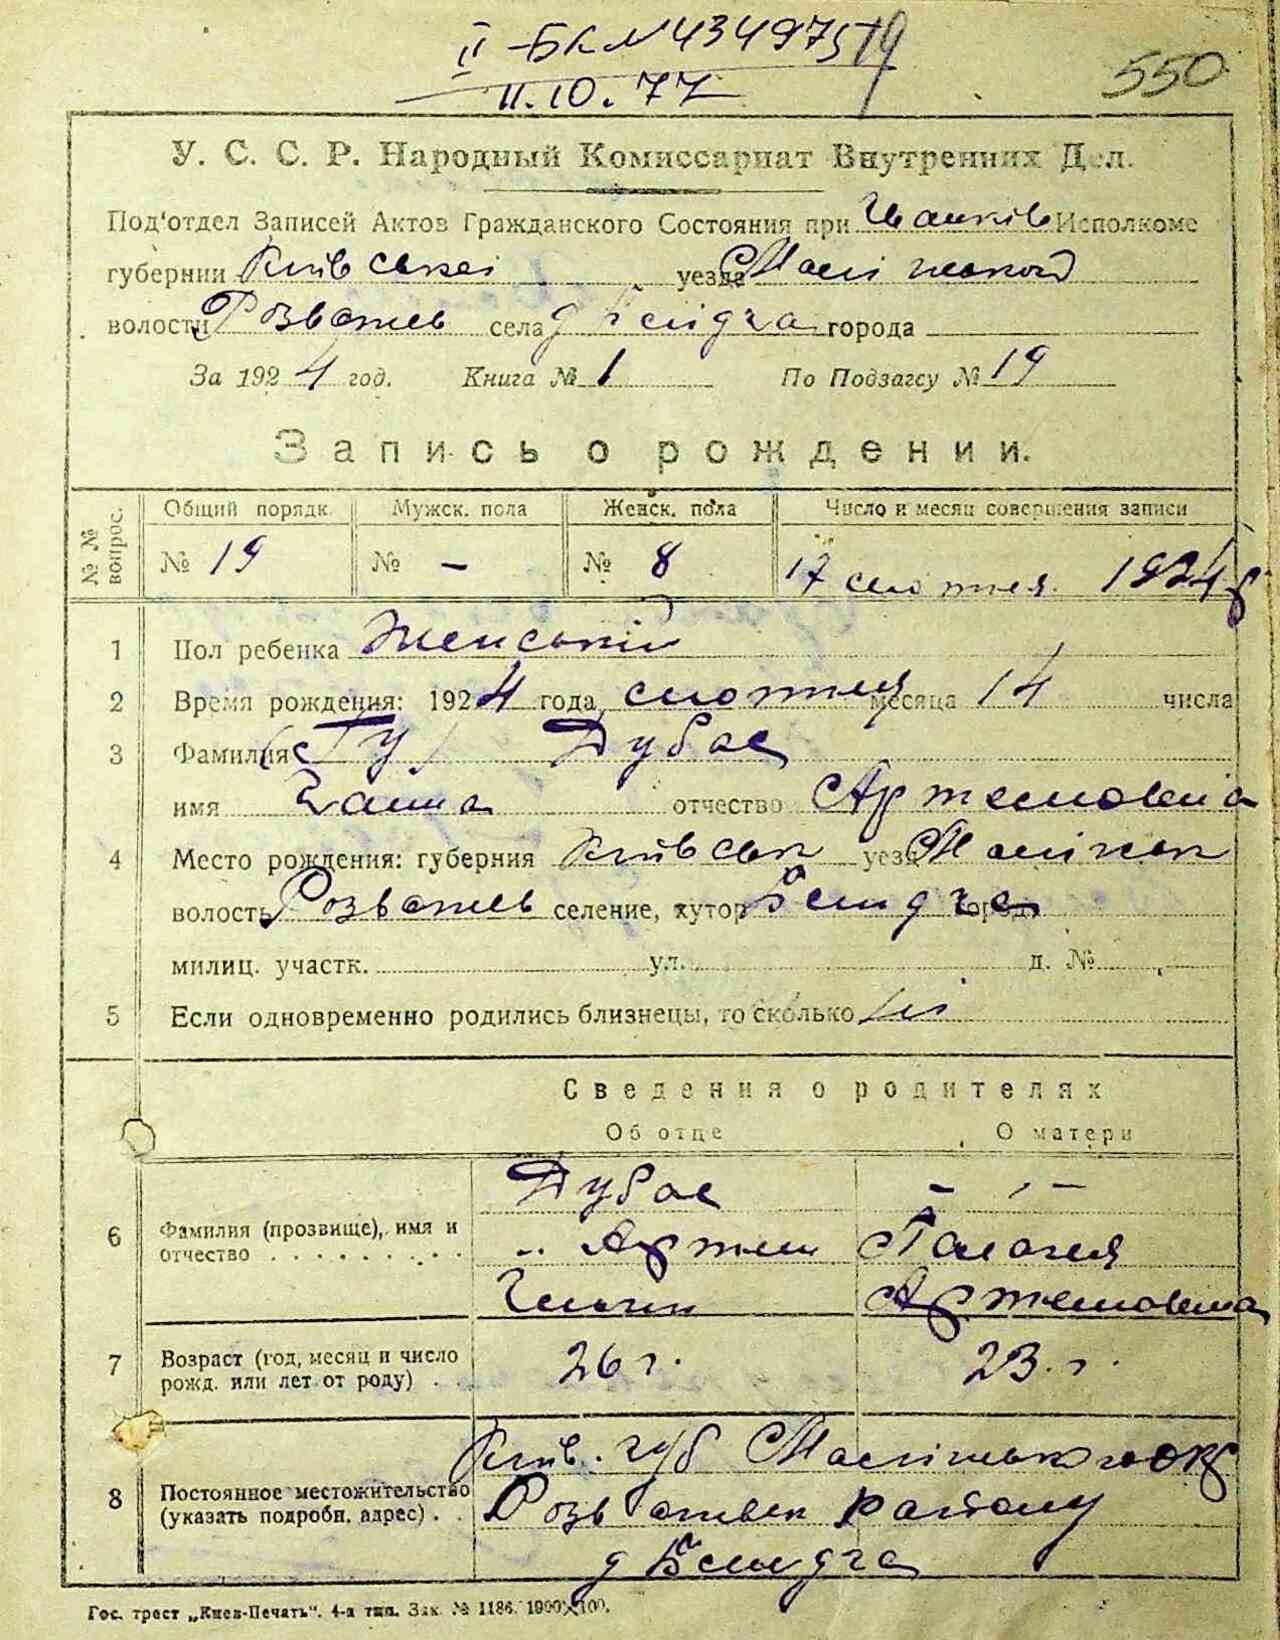 II-БК №434975
11.10.77
550
У. С. С. Р. Народный Комиссариат Внутренних Дел.
Под'отдел Записей Актов Гражданского Состояния при Исполкоме
губернии Київської уезда Малінської
волости Розважев села города
За 1924 год. Книга № 1 По Подзагсу № 19
Запись о рождении.
№№ вопрос.
Общий порядк. Мужск. пола Женск. пола Число и месяц совершения записи
№ 19 № - № 8 17 1924
1 Пол ребенка Женський
2 Время рождения: 1924 года месяца 14 числа
3 Фамилия Дубас
имя отчество Артемовна
4 Место рождения: губерния Київськ уезд Малінськ
волость Розважев селение, хутор город
милиц. участк. ул. д. №
5 Если одновременно родились близнецы, то сколько ні
Сведения о родителях
Об отце О матери
Дубас - , -
6 Фамилия (прозвище), имя и Артем
отчество Артемовна
7 Возраст (год, месяц и число 26 г. 23. г.
рожд. или лет от роду)
Київ. губ Малінського окр
8 Постоянное местожительство
(указать подробн. адрес) Розважівськ району
Гос. трест „Киев-Печать“. 4-я тип. Зак. № 1186. 1900×100.